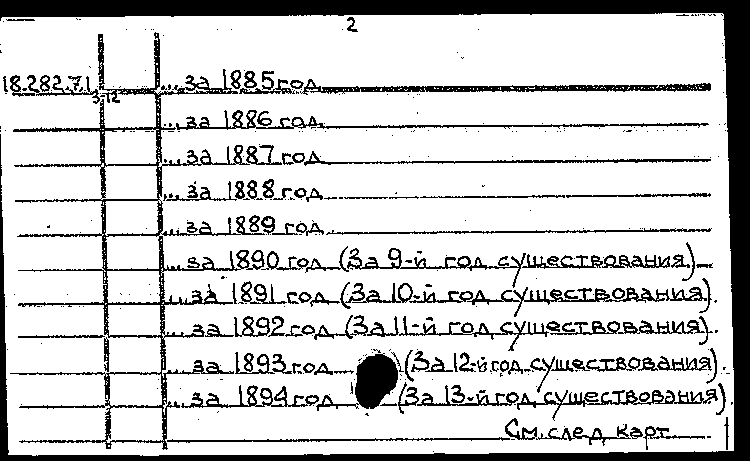 2
18.282.71 ... за 1885 год
3-12
... за 1886 год
... за 1887 год
... за 1888 год
... за 1889 год
... за 1890 год (За 9-й год существования)
... за 1891 год (За 10-й год существования).
... за 1892 год (За 11-й год существования).
... за 1893 год (За 12-й год существования).
... за 1894 год (За 13-й год существования).
См. след карт.